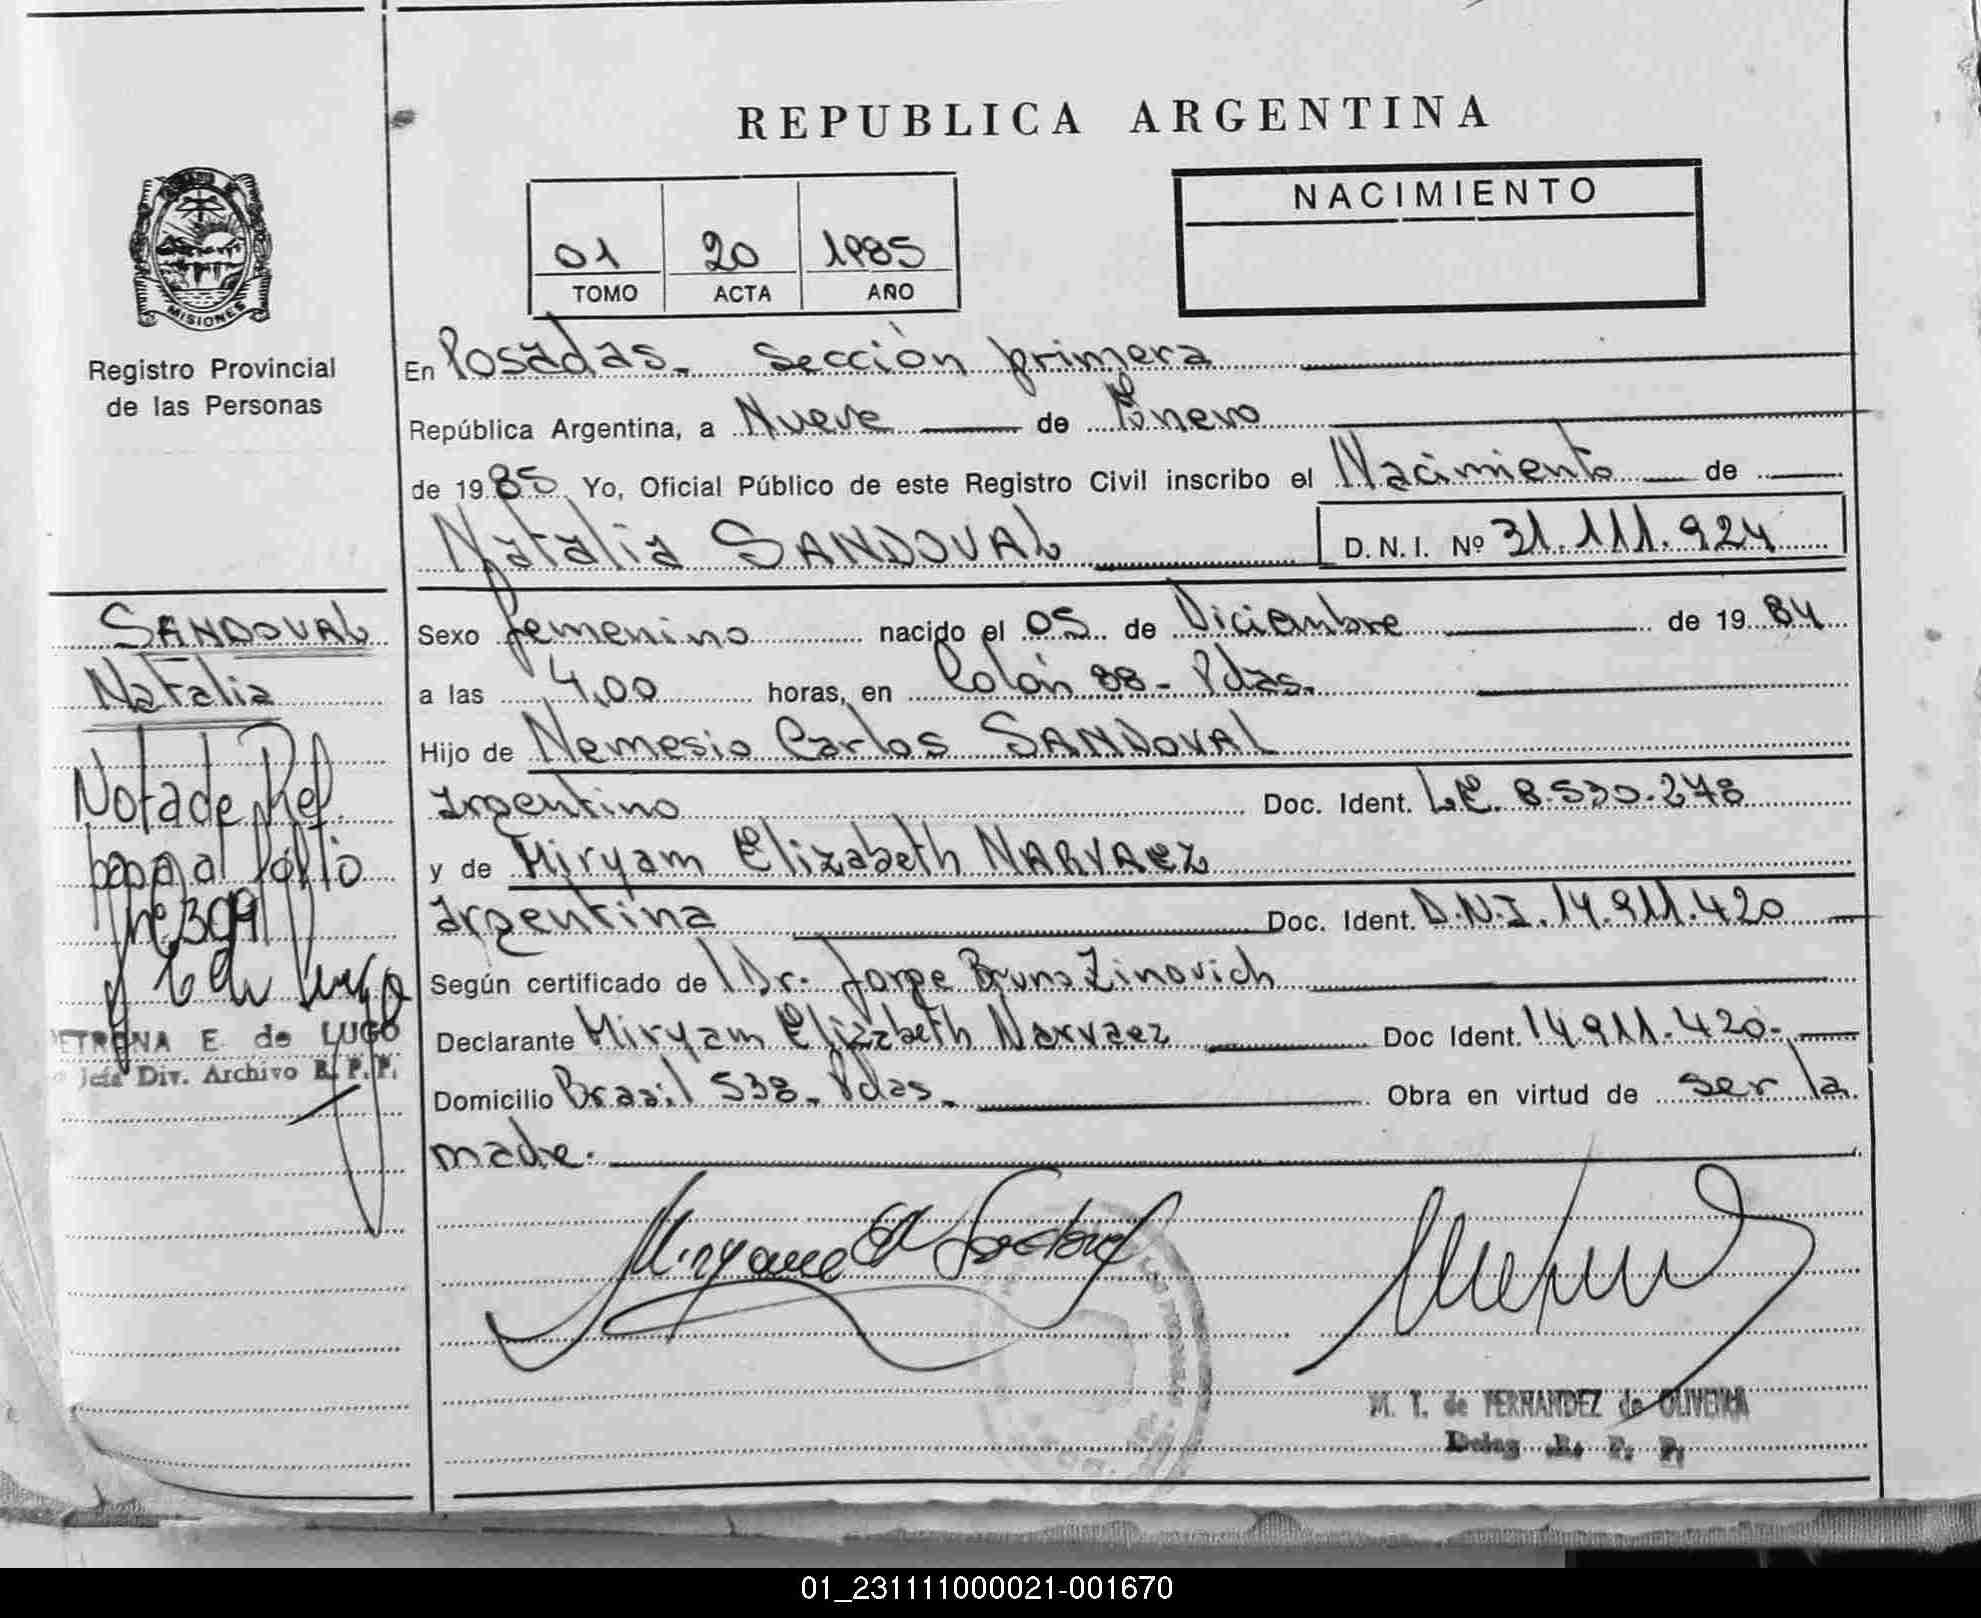 REPUBLICA ARGENTINA
NACIMIENTO
01 20 1985
TOMO ACTA AÑO
MISIONES
Registro Provincial
de las Personas
En Posadas. Sección primera
República Argentina, a Nueve de Enero
de 1985 Yo, Oficial Público de este Registro Civil inscribo el Nacimiento de
Natalia SANDOVAL D.N.I. Nº 31.111.924
Sexo femenino nacido el 05 de Diciembre de 1984
a las 4,00 horas, en Colón 88 - Pdas.
Hijo de Nemesio Carlos SANDOVAL
argentino Doc. Ident. L.E. 8.530.278
y de Miryam Elizabeth NARVAEZ
argentina Doc. Ident. D.N.I. 14.911.420
Según certificado de Dr. Jorge Bruno Zinovich
Declarante Miryam Elizabeth Narvaez Doc Ident. 14.911.420.
Domicilio Brasil 538 - Pdas. Obra en virtud de ser la
madre.
SANDOVAL
Natalia
Nota de Ref.
pasa al folio
nº 309
ETRONA E. de LUGO
Jefa Div. Archivo R. P. P.
M. T. de FERNANDEZ de OLIVEIRA
Deleg R. P. P.
01_231111000021-001670